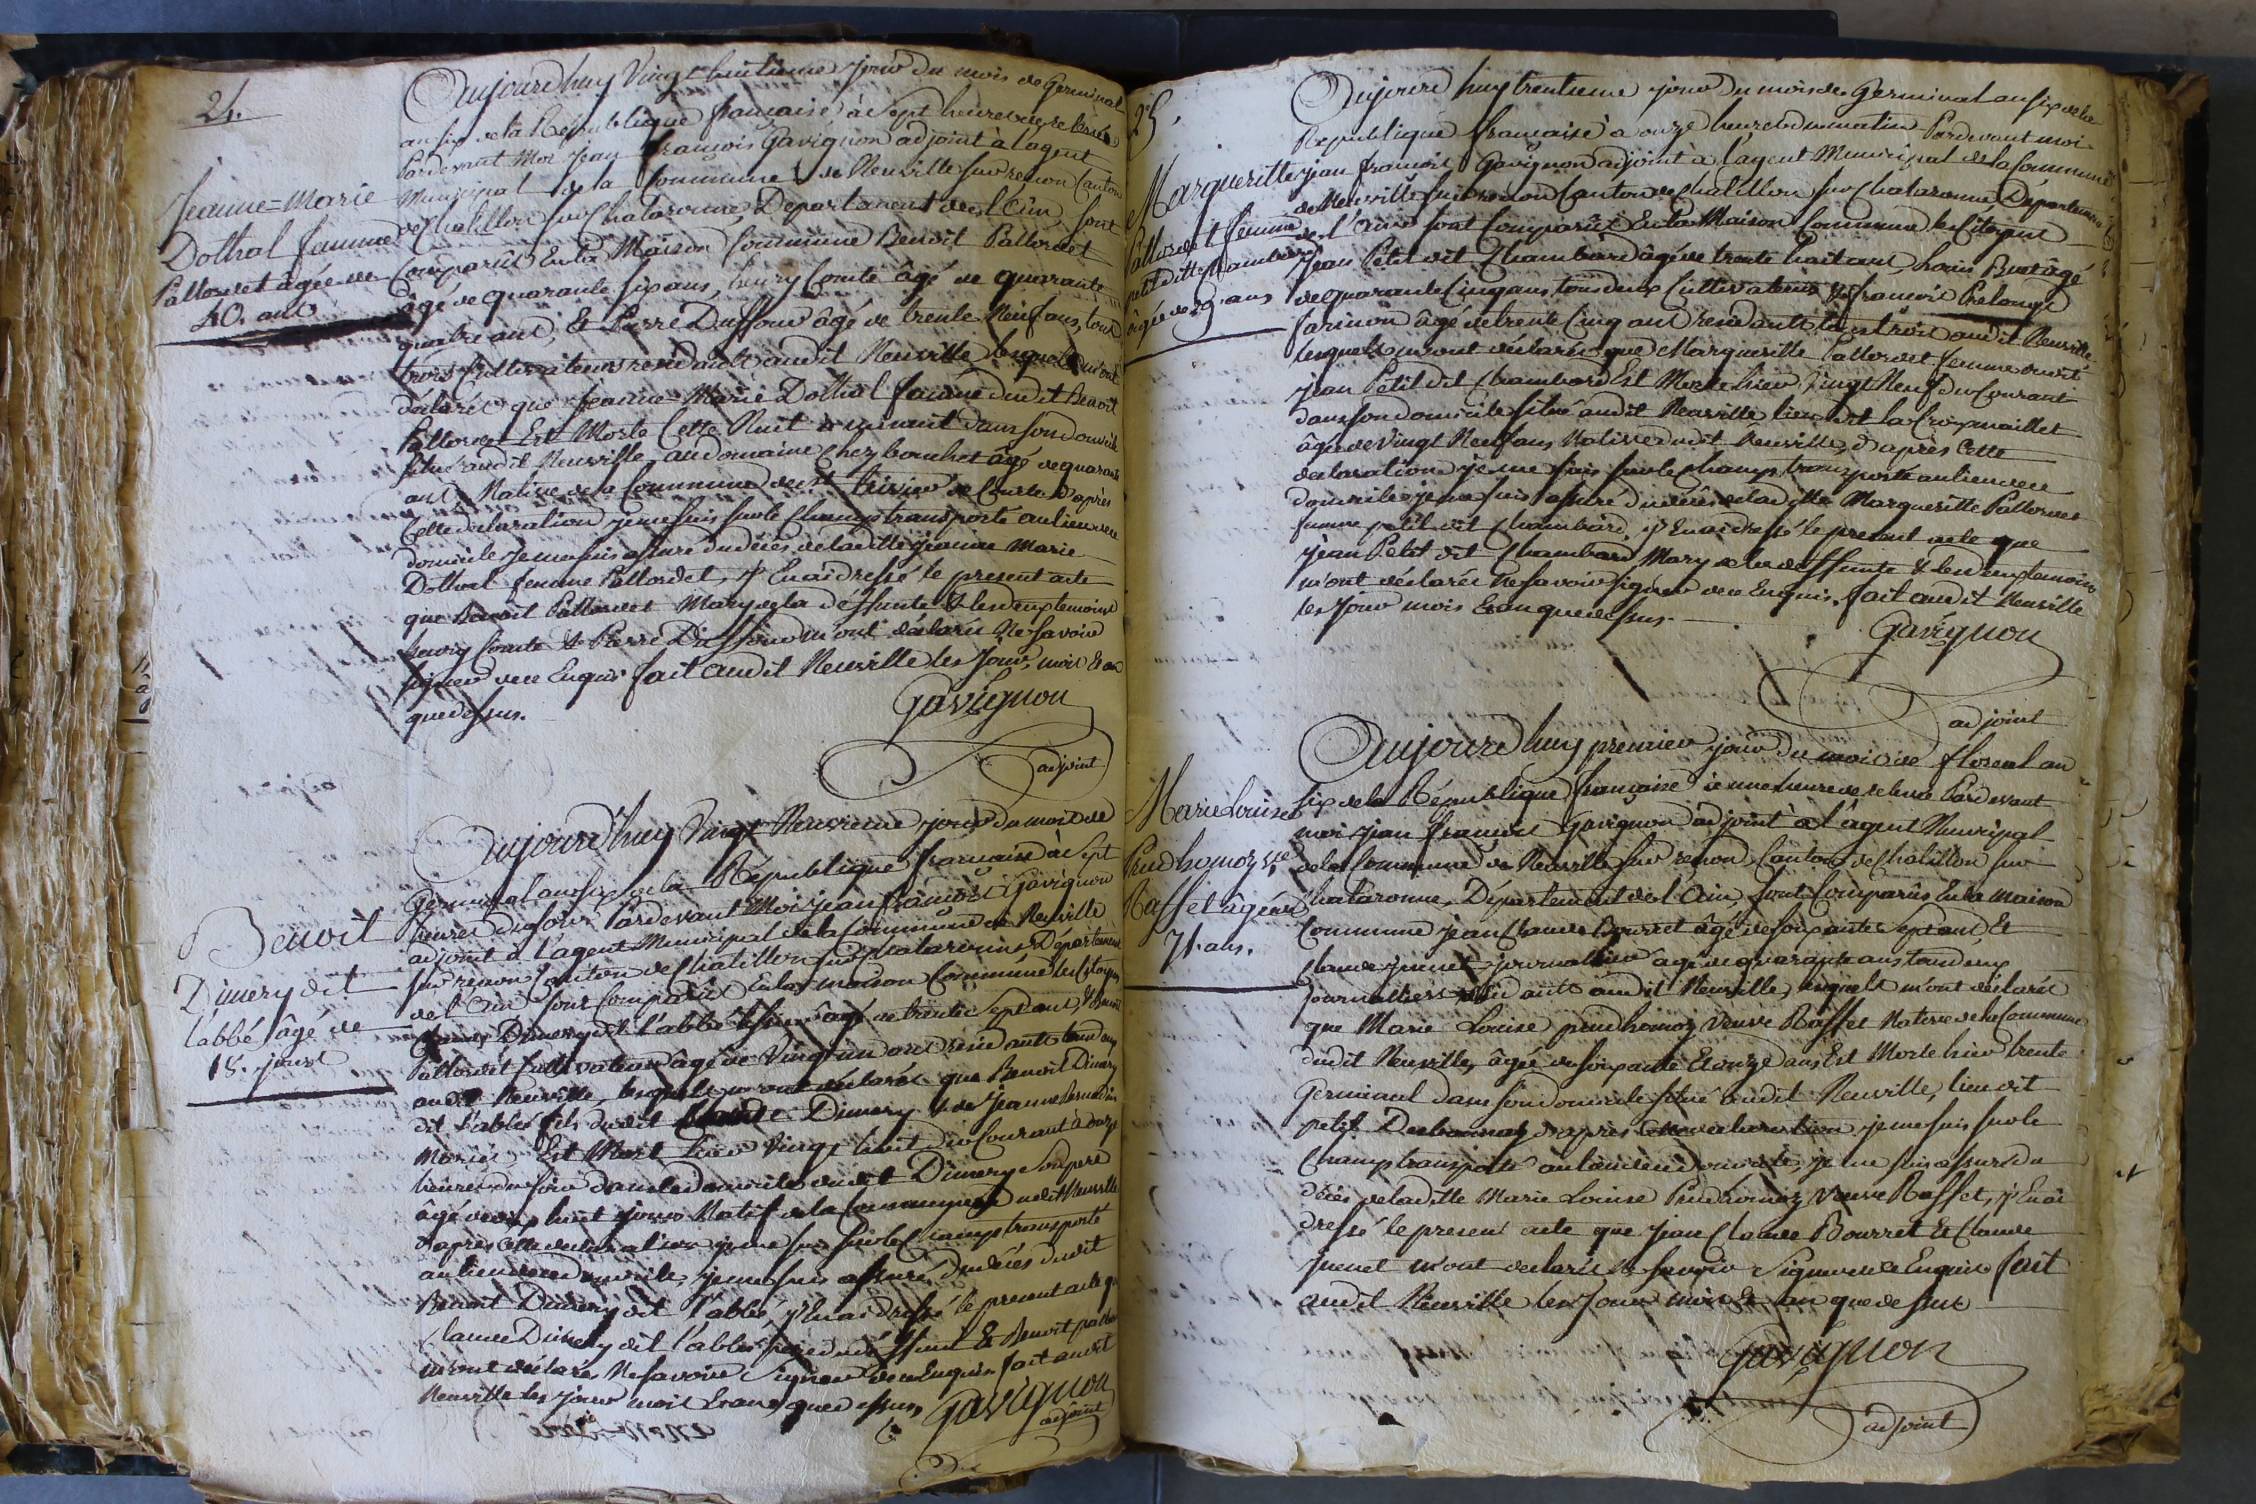 24.
Jeanne-Marie
Dothal femme
Pallordet âgée de
40. ans
Aujourd'huy Vingt huitieme jour du mois de Germinal
an six de la République française à Sept heures
Pardevant Moi jean françois Gavignon adjoint à l'agent
Municipal de la Commune de Neuville sur renon Canton
de Chatillon sur Chalaronne, Département de l'Ain, sont
Comparûs En la Maison Commune Benoit Pallordet
âgé de quarante six ans, henry Comte âgé de quarante
quatre ans, Et Pierre Duffour âgé de trente Neuf ans, tous
trois Cultivateurs residants audit Neuville lesquels m'ont
déclarés que Jeanne-Marie Dothal femme dudit Benoit
Pallordet Est Morte Cette Nuit à minuit dans son domicile
situé audit Neuville, au domaine Chez bouchet âgé de quarante
ans Native de la Commune de St trivier de Courte d'après
Cette déclaration je me suis sur le Champ transporté au lieu de ce
domicile je me suis assuré du décès de laditte jeanne Marie
Dothal femme Pallordet, j'En ai dressé le présent acte
que Benoit Pallordet Mary de la deffunte & les deux temoins
henry Comte & Pierre Duffour m'ont déclarés Ne savoir
signer de ce Enquis fait audit Neuville les Jour, mois & an
que dessus.
Gavignon
adjoint
Benoit
Dimery dit
l'abbé âgé de
18. jours
Aujourd'huy Vingt Neuvieme jour du mois de
Germinal an six de la République française à Sept
heures du soir Pardevant Moi jean françois Gavignon
adjoint à l'agent Municipal de la Commune de Neuville
sur renon Canton de Chatillon sur Chalaronne, Département
de l'Ain sont Comparûs En la maison Commune les Citoyens
Dimery dit l'abbé âgé de trente sept ans, & Benoit
Pallordet Cultivateur âgé de Vingt un ans residants tous deux
audit Neuville, lesquels m'ont déclarés que Benoit Dimery
dit l'abbé fils dudit Claude Dimery & de Jeanne
Mariés Est Mort hier Vingt huit du Courant à onze
heures du soir dans le domicile dudit Dimery Son pere
âgé de dix huit jours Natif de la Commune dudit Neuville
d'après cette déclaration je me suis sur le Champ transporté
au lieu de ce domicile, je me suis assuré du décès dudit
Benoit Dimery dit l'abbé, j'En ai dressé le present acte que
Claude Dimery dit l'abbé pere du deffunt & Benoit
m'ont déclarés Ne savoir Signer de ce Enquis fait audit
Neuville les jour mois & an que dessus.
Gavignon
adjoint
25.
Margueritte
Pallordet femme
petit dit Chambard
âgée de 29. ans
Aujourd'huy trentieme jour du mois de Germinal an six de la
Republique française à onze heures du matin Pardevant moi
jean françois Gavignon adjoint à l'agent Municipal de la Commune
de Neuville sur renon Canton de Chatillon sur Chalaronne Département
de l'Ain sont Comparûs En la Maison Commune les Citoyens
Jean Petit dit Chambard âgé de trente huit ans, Louis Buet âgé
de quarante Cinq ans, tous deux Cultivateurs & françois Prelonge
farinon âgé de trente Cinq ans residants tous trois audit Neuville
lesquels m'ont déclarés que Margueritte Pallordet femme dudit
jean Petit dit Chambard Est Morte hier Vingt Neuf du Courant
dans son domicile situé audit Neuville lieu dit la Croix maillet
âgée de Vingt Neuf ans, Native dudit Neuville, d'après Cette
declaration je me suis sur le champ transporté au lieu de ce
domicile je me suis assuré du décès de laditte Margueritte Pallordet
femme petit dit Chambard, j'En ai dressé le present acte que
Jean Petit dit Chambard Mary de la deffunte & les deux temoins
m'ont déclarés Ne Savoir Signer de ce Enquis. fait audit Neuville
les Jour mois & an que dessus.
Gavignon
adjoint
Marie Louise
Prudhomoz Vve
Raffet âgée de
71. ans.
Aujourd'huy premier jour du mois de floreal an
six de la République française à une heure de relevée Pardevant
moi jean françois Gavignon adjoint à l'agent Municipal
de la Commune de Neuville sur renon, Canton de Chatillon sur
Chalaronne, Département de l'Ain, sont Comparûs En la maison
Commune jean Claude Bourret âgé de soixante Sept ans, Et
Claude jeunet journallier âgé de quarante ans tous deux
journalliers residants audit Neuville, lesquels m'ont déclarés
que Marie Louise prudhomoz Veuve Raffet Native de la Commune
dudit Neuville, âgée de soixante Et onze ans Est Morte hier trente
Germinal dans son domicile situé audit Neuville, lieu dit
petit d'après cette declaration je me suis sur le
Champ transporté au lieu de ce domicile, je me suis assuré du
décès de laditte Marie Louise Prudhomoz Veuve Raffet, j'En ai
dressé le present acte que Jean Claude Bourret Et Claude
jeunet m'ont declarés Ne Savoir Signer de ce Enquis fait
audit Neuville les Jour mois Et an que dessus
Gavignon
adjoint